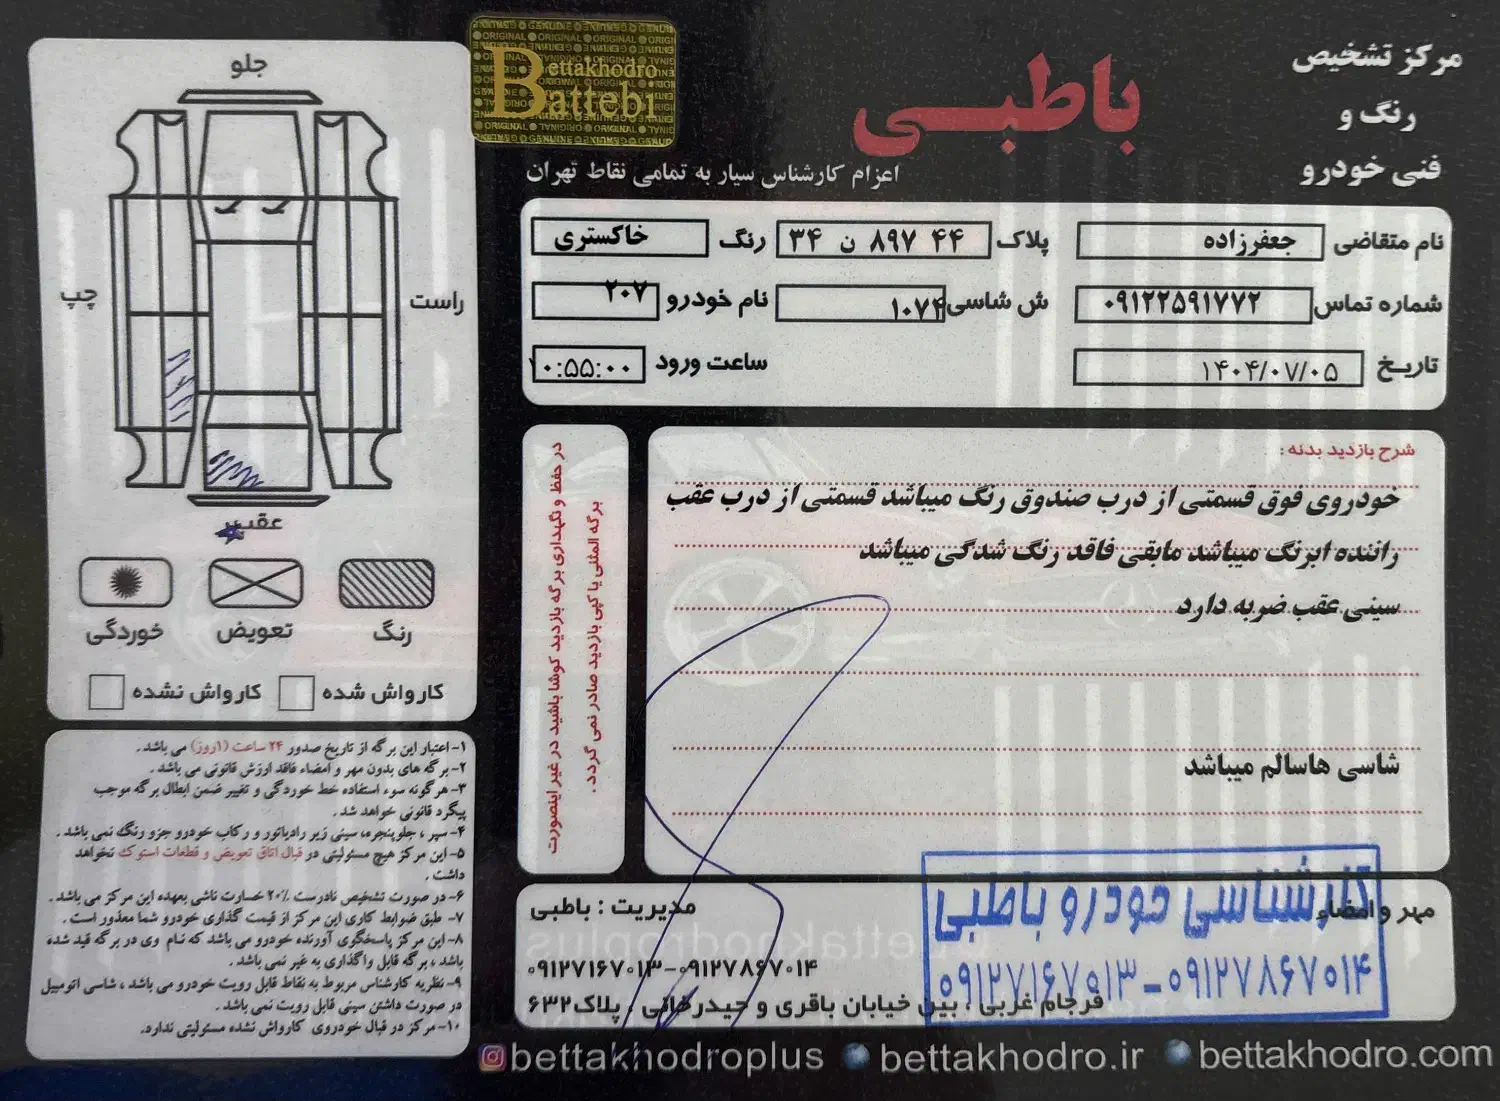 مرکز تشخیص
رنگ و
فنی خودرو
باطبی
اعزام کارشناس سیار به تمامی نقاط تهران
Bettakhodro
Battebi
نام متقاضی جعفرزاده پلاک ۴۴ ۸۹۷ ن ۳۴ رنگ خاکستری
شماره تماس ۰۹۱۲۲۵۹۱۷۷۲ ش شاسی ۱۰۷۴ نام خودرو ۲۰۷
تاریخ ۱۴۰۴/۰۷/۰۵ ساعت ورود ۱۰:۵۵:۰۰
جلو
چپ
راست
عقب
رنگ
تعویض
خوردگی
کارواش شده
کارواش نشده
شرح بازدید بدنه :
خودروی فوق قسمتی از درب صندوق رنگ میباشد قسمتی از درب عقب
راننده ابرنگ میباشد مابقی فاقد رنگ شدگی میباشد
سینی عقب ضربه دارد
شاسی هاسالم میباشد
در حفظ و نگهداری برگه بازدید کوشا باشید در غیر اینصورت
برگه المثنی یا کپی بازدید صادر نمی گردد.
۱- اعتبار این برگه از تاریخ صدور ۲۴ ساعت (۱روز) می باشد .
۲- برگه های بدون مهر و امضاء فاقد ارزش قانونی می باشد .
۳- هرگونه سوء استفاده خط خوردگی و تغییر ضمن ابطال برگه موجب
پیگرد قانونی خواهد شد .
۴- سپر ، جلوپنجره، سینی زیر رادیاتور و رکاب خودرو جزو رنگ نمی باشد .
۵- این مرکز هیچ مسئولیتی در قبال اتاق تعویض و قطعات استوک نخواهد
داشت .
۶- در صورت تشخیص نادرست ۲۰٪ خسارت ناشی بعهده این مرکز می باشد .
۷- طبق ضوابط کاری این مرکز از قیمت گذاری خودرو شما معذور است .
۸- این مرکز پاسخگوی آورنده خودرو می باشد که نام وی در برگه قید شده
باشد ، برگه قابل واگذاری به غیر نمی باشد .
۹- نظریه کارشناس مربوط به نقاط قابل رویت خودرو می باشد ، شاسی اتومبیل
در صورت داشتن سینی قابل رویت نمی باشد .
۱۰- مرکز در قبال خودروی کارواش نشده مسئولیتی ندارد.
مهر و امضاء
مدیریت : باطبی
۰۹۱۲۷۱۶۷۰۱۳-۰۹۱۲۷۸۶۷۰۱۴
فرجام غربی ، بین خیابان باقری و حیدرخانی ، پلاک ۶۳۲
کارشناسی خودرو باطبی
۰۹۱۲۷۱۶۷۰۱۳-۰۹۱۲۷۸۶۷۰۱۴
bettakhodroplus bettakhodro.ir bettakhodro.com